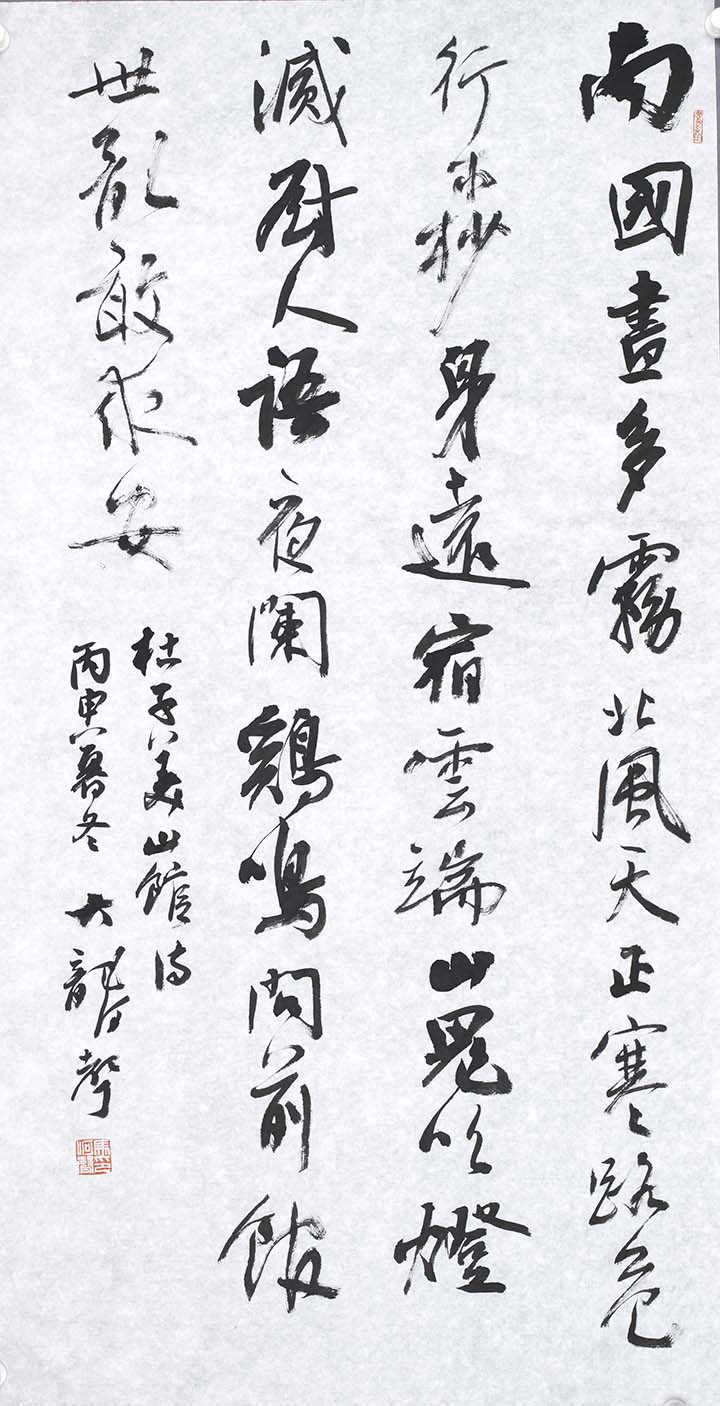 南國晝多霧北風天正寒路危
行木杪身遠宿雲端山鬼吹燈
滅厨人語夜闌鷄鳴問前館
世亂敢求安
杜子美山館詩
丙申暮冬 大龍